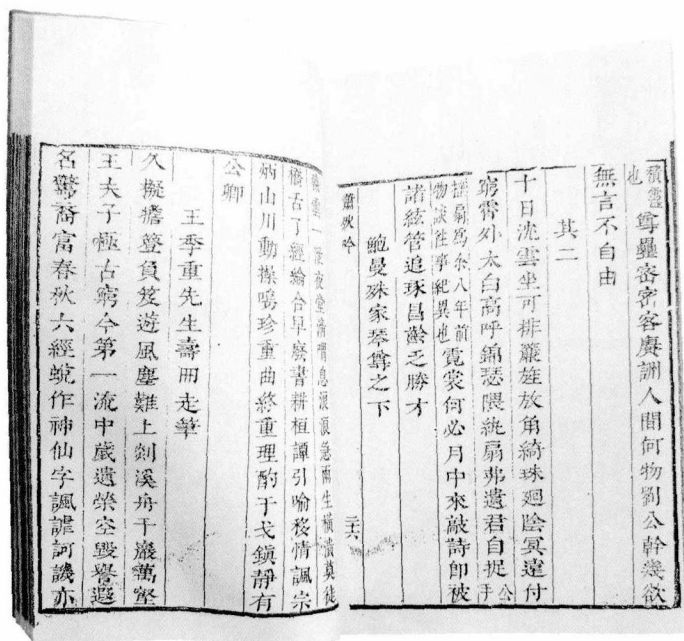 積靈
也
尊罍密密客賡詶人間何物劉公幹幾欲
無言不自由
其二
十日沈雲坐可排叢旌放角綺珠廻陰冥遠付
窮霄外太白高呼錦瑟隈紈扇弗遺君自捉公手
揺扇爲余八年前
物談往事紀異也
霓裳何必月中來敲詩即被
諸絃管追琢昌齡乏勝才
鮑曼殊家琴尊之下
蕭吟
二十六
雲一夜堂清喟息浪浪急雨生橫潰莫徒
橋舌了經綸合早廢書耕桓譚引喻移情諷宗
炳山川動操鳴珍重曲終重理酌干戈鎮靜有
公卿
王季重先生壽冊走筆
久擬擔簦負笈遊風塵難上剡溪舟千巖萬壑
王夫子極古窮今第一流中歲遺榮空毀譽遐
名驚裔富春秋六經蛻作神仙字諷謔訶譏亦